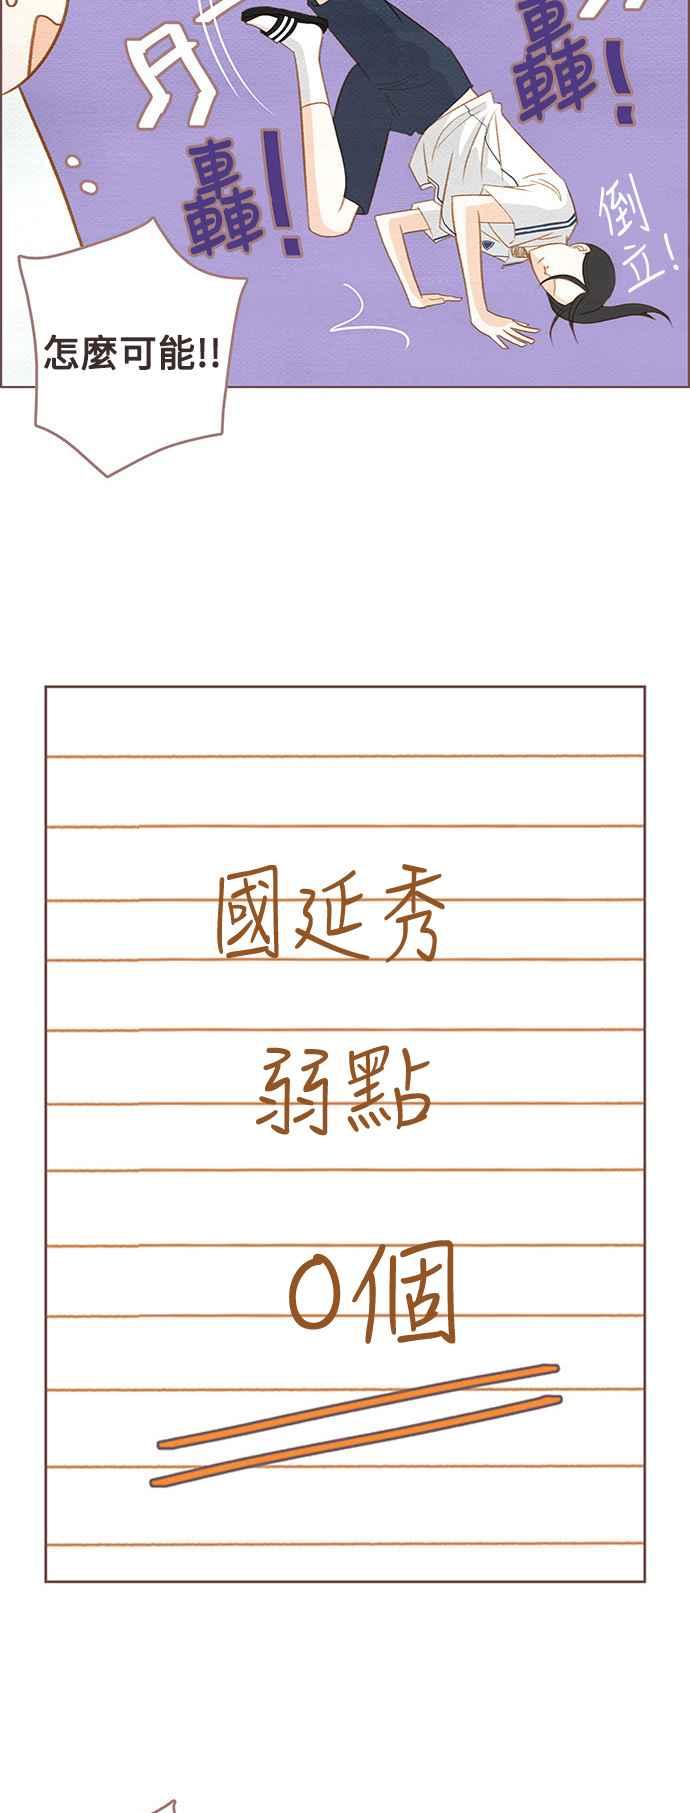 轟!
轟!
倒立!
怎麼可能!!
國延秀
弱點
0個